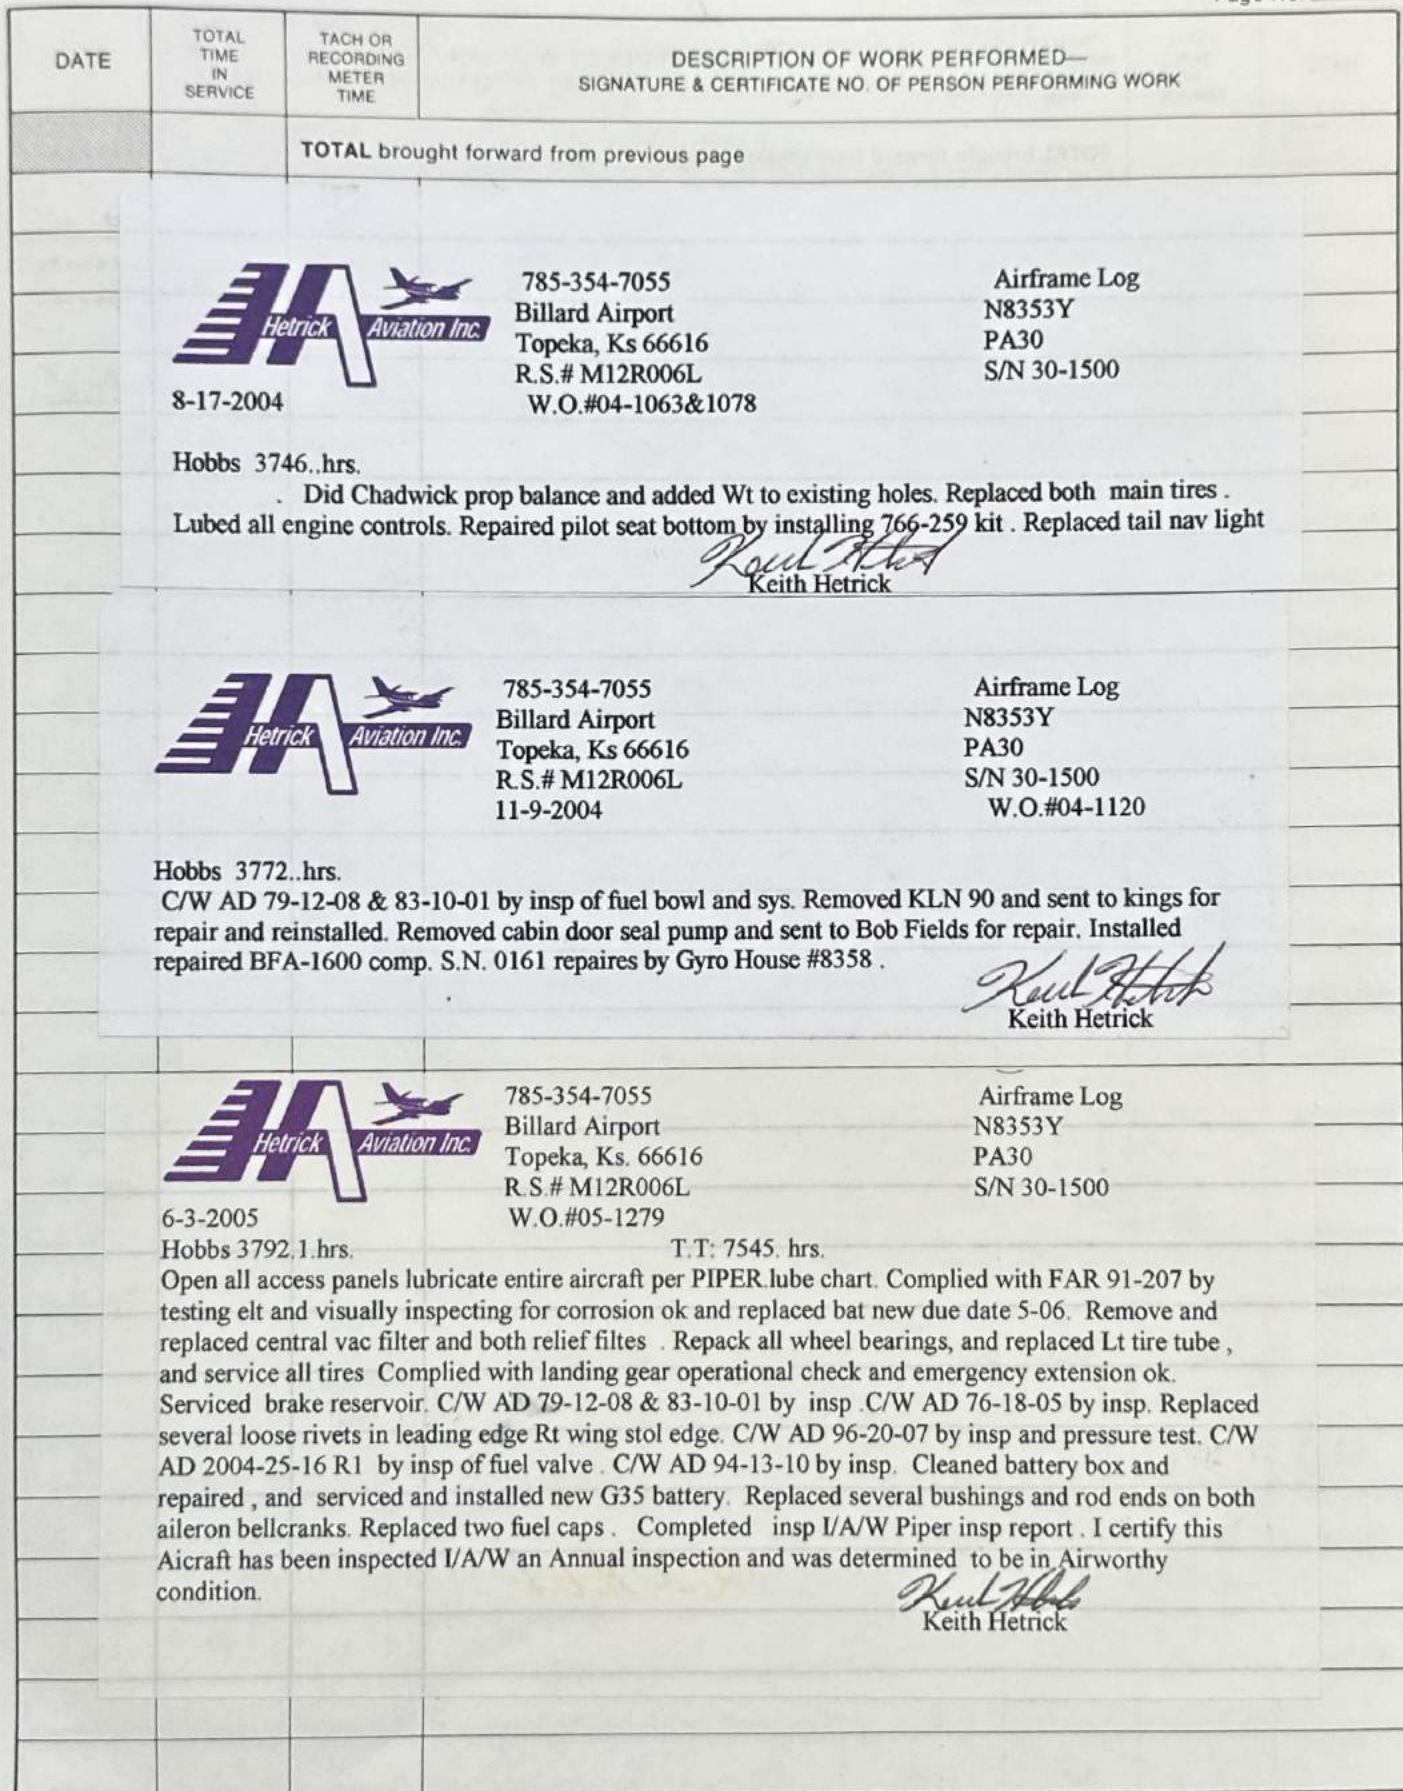 DATE
TOTAL
TIME
IN
SERVICE
TACH OR
RECORDING
METER
TIME
DESCRIPTION OF WORK PERFORMED—
SIGNATURE & CERTIFICATE NO. OF PERSON PERFORMING WORK
TOTAL brought forward from previous page
HA
Hetrick Aviation Inc.
785-354-7055
Billard Airport
Topeka, Ks 66616
R.S.# M12R006L
W.O.#04-1063&1078
Airframe Log
N8353Y
PA30
S/N 30-1500
8-17-2004
Hobbs 3746..hrs.
. Did Chadwick prop balance and added Wt to existing holes. Replaced both main tires .
Lubed all engine controls. Repaired pilot seat bottom by installing 766-259 kit . Replaced tail nav light
Keith Hetrick
HA
Hetrick Aviation Inc.
785-354-7055
Billard Airport
Topeka, Ks 66616
R.S.# M12R006L
11-9-2004
Airframe Log
N8353Y
PA30
S/N 30-1500
W.O.#04-1120
Hobbs 3772..hrs.
C/W AD 79-12-08 & 83-10-01 by insp of fuel bowl and sys. Removed KLN 90 and sent to kings for
repair and reinstalled. Removed cabin door seal pump and sent to Bob Fields for repair. Installed
repaired BFA-1600 comp. S.N. 0161 repaires by Gyro House #8358 .
Keith Hetrick
HA
Hetrick Aviation Inc.
785-354-7055
Billard Airport
Topeka, Ks. 66616
R.S.# M12R006L
W.O.#05-1279
Airframe Log
N8353Y
PA30
S/N 30-1500
6-3-2005
Hobbs 3792.1.hrs. T.T: 7545. hrs.
Open all access panels lubricate entire aircraft per PIPER.lube chart. Complied with FAR 91-207 by
testing elt and visually inspecting for corrosion ok and replaced bat new due date 5-06. Remove and
replaced central vac filter and both relief filtes . Repack all wheel bearings, and replaced Lt tire tube ,
and service all tires Complied with landing gear operational check and emergency extension ok.
Serviced brake reservoir. C/W AD 79-12-08 & 83-10-01 by insp .C/W AD 76-18-05 by insp. Replaced
several loose rivets in leading edge Rt wing stol edge. C/W AD 96-20-07 by insp and pressure test. C/W
AD 2004-25-16 R1 by insp of fuel valve . C/W AD 94-13-10 by insp. Cleaned battery box and
repaired , and serviced and installed new G35 battery. Replaced several bushings and rod ends on both
aileron bellcranks. Replaced two fuel caps . Completed insp I/A/W Piper insp report . I certify this
Aicraft has been inspected I/A/W an Annual inspection and was determined to be in Airworthy
condition.
Keith Hetrick